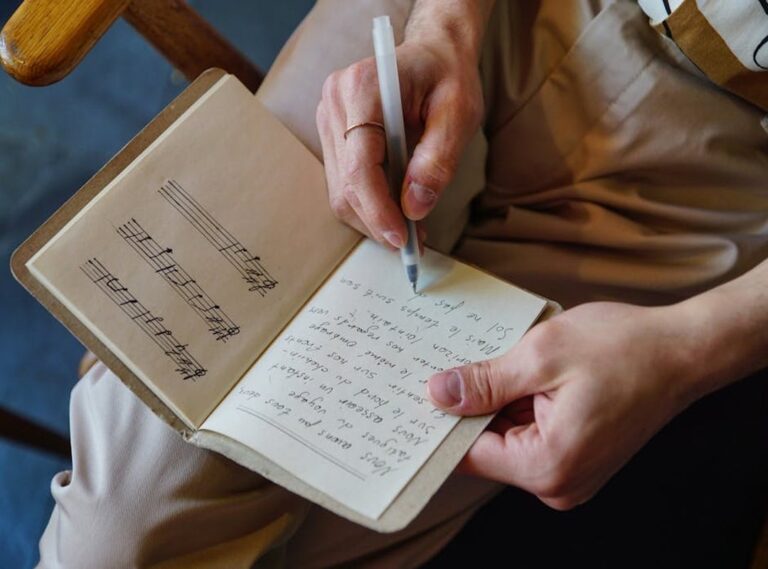 Nous avions pu tous deux
fatigués du voyage
Nous asseoir un instant
Sur le bord du chemin.
sentir sur nos fronts
le même ombrage
nos regards vers
horizon lointain.
Mais le temps suit son
ne pas